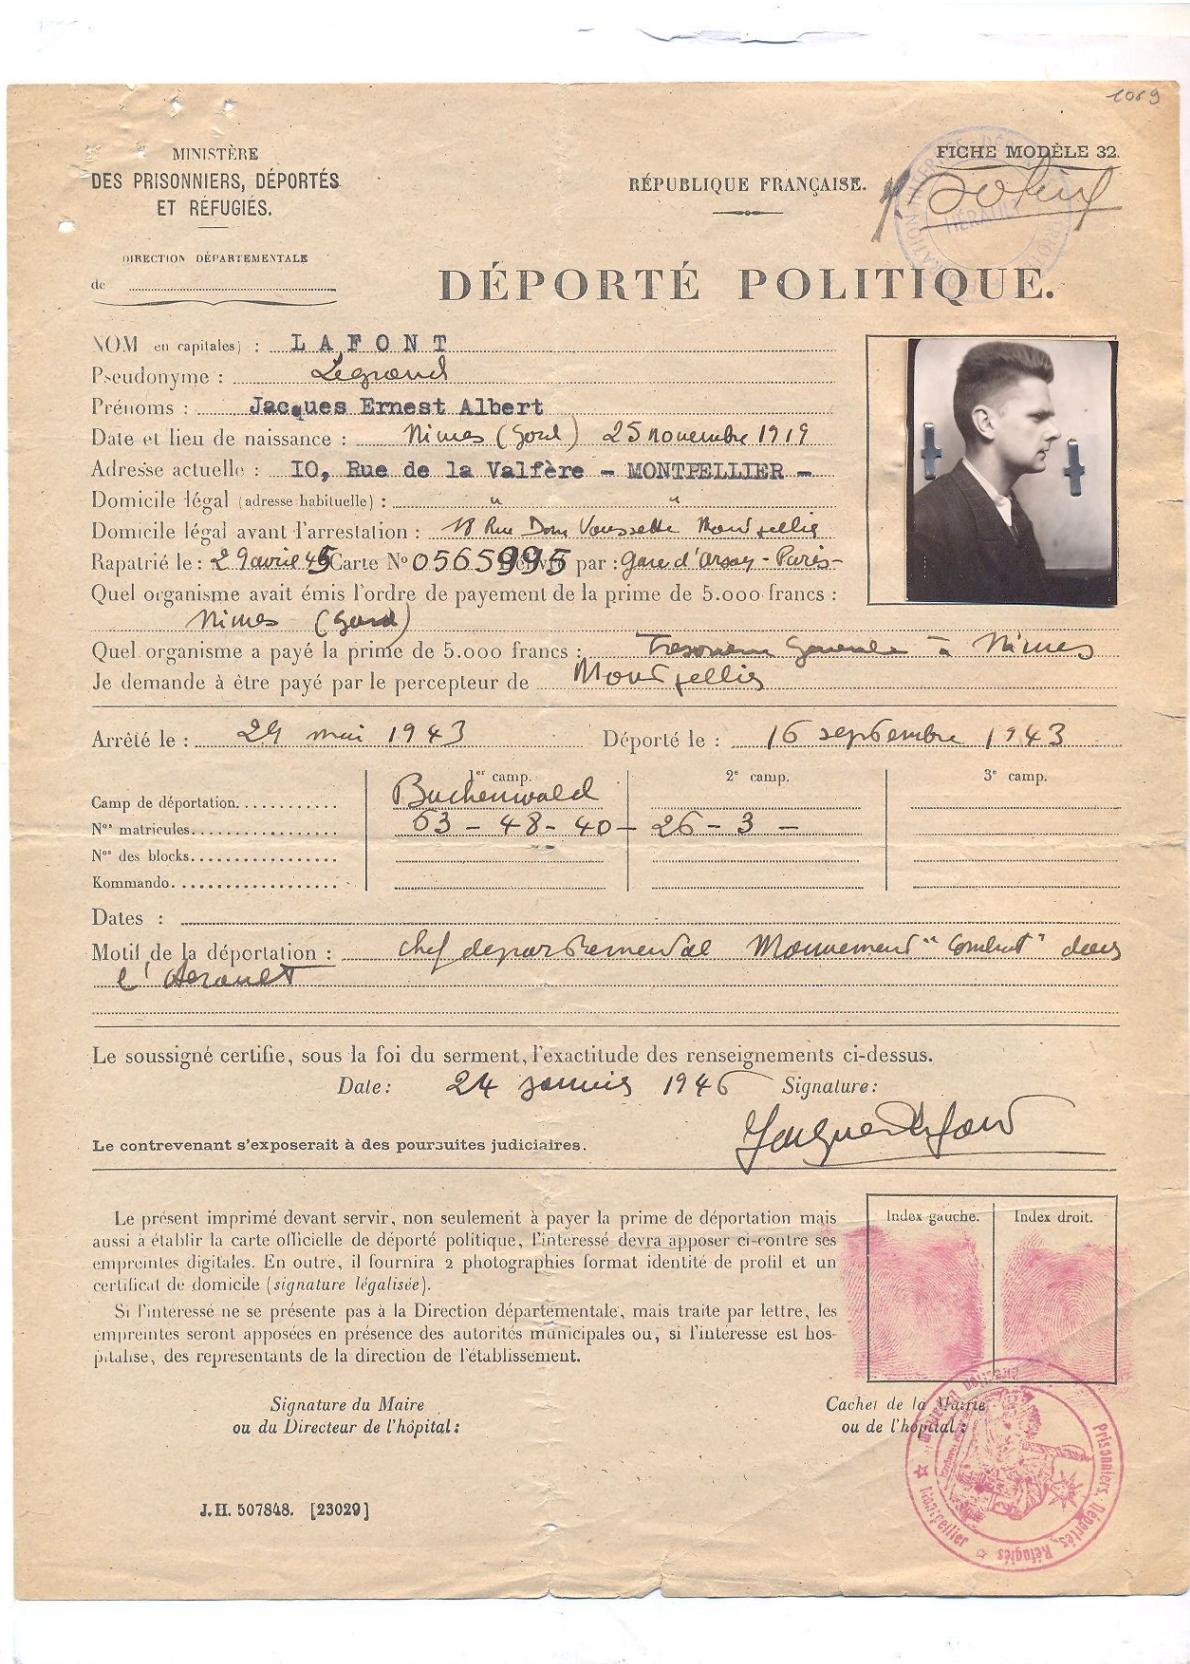 1069
MINISTÈRE
DES PRISONNIERS, DÉPORTÉS
ET RÉFUGIÉS.
DIRECTION DÉPARTEMENTALE
de
RÉPUBLIQUE FRANÇAISE.
FICHE MODÈLE 32.
HÉRAULT
DÉPORTÉ POLITIQUE.
NOM en capitales) : LAFONT
Pseudonyme : Legrand
Prénoms : Jacques Ernest Albert
Date et lieu de naissance : Nimes (Gard) 25 novembre 1919
Adresse actuelle : IO, Rue de la Valfère — MONTPELLIER —
Domicile légal (adresse habituelle) : " "
Domicile légal avant l'arrestation : 18 Rue Dom Vaissette Montpellier
Rapatrié le : 29 avril 45 Carte N° 0565995 par : Gare d'Orsay - Paris -
Quel organisme avait émis l'ordre de payement de la prime de 5.000 francs :
Nimes (Gard)
Quel organisme a payé la prime de 5.000 francs : à Nimes
Je demande à être payé par le percepteur de Montpellier
Arrêté le : 29 mai 1943 Déporté le : 16 septembre 1943
1er camp. 2e camp. 3e camp.
Camp de déportation............ Buchenwald
Nos matricules................. 63 - 48 - 40 - 26 - 3 -
Nos des blocks.................
Kommando....................
Dates :
Motif de la déportation : chef departemental Mouvement "Combat" dans
l'Herault
Le soussigné certifie, sous la foi du serment, l'exactitude des renseignements ci-dessus.
Date : 24 janvier 1946 Signature :
Jacques Lafont
Le contrevenant s'exposerait à des poursuites judiciaires.
Le présent imprimé devant servir, non seulement à payer la prime de déportation mais
aussi à établir la carte officielle de déporté politique, l'intéressé devra apposer ci-contre ses
empreintes digitales. En outre, il fournira 2 photographies format identité de profil et un
certificat de domicile (signature légalisée).
Si l'interessé ne se présente pas à la Direction départementale, mais traite par lettre, les
empreintes seront apposées en présence des autorités municipales ou, si l'intéresse est hos-
pitalise, des representants de la direction de l'établissement.
Index gauche. Index droit.
Signature du Maire
ou du Directeur de l'hôpital :
Cachet de la Mairie
ou de l'hôpital :
Prisonniers, Déportés, Réfugiés
Montpellier
J.H. 507848. [23029]